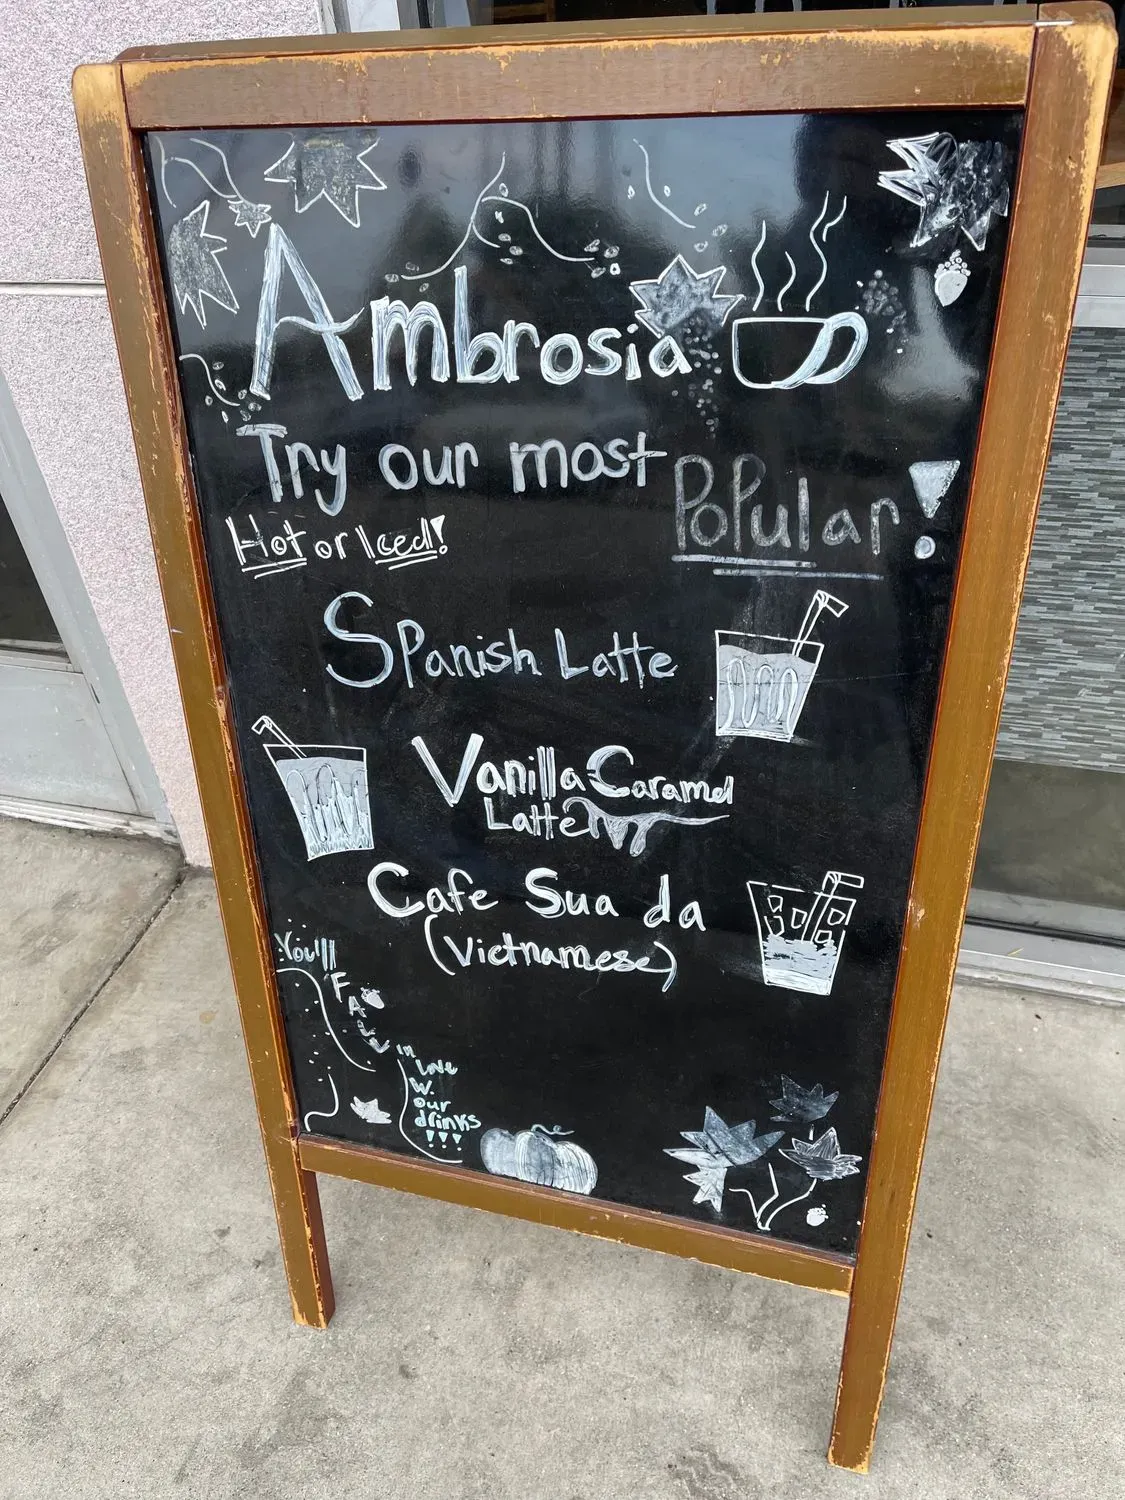 Ambrosia
Try our most
PoPular!
Hot or Iced!
SPanish Latte
Vanilla Caramel
Latte
Cafe Sua da
(Vietnamese)
You'll
FALL
in
love
W.
our
drinks
!!!